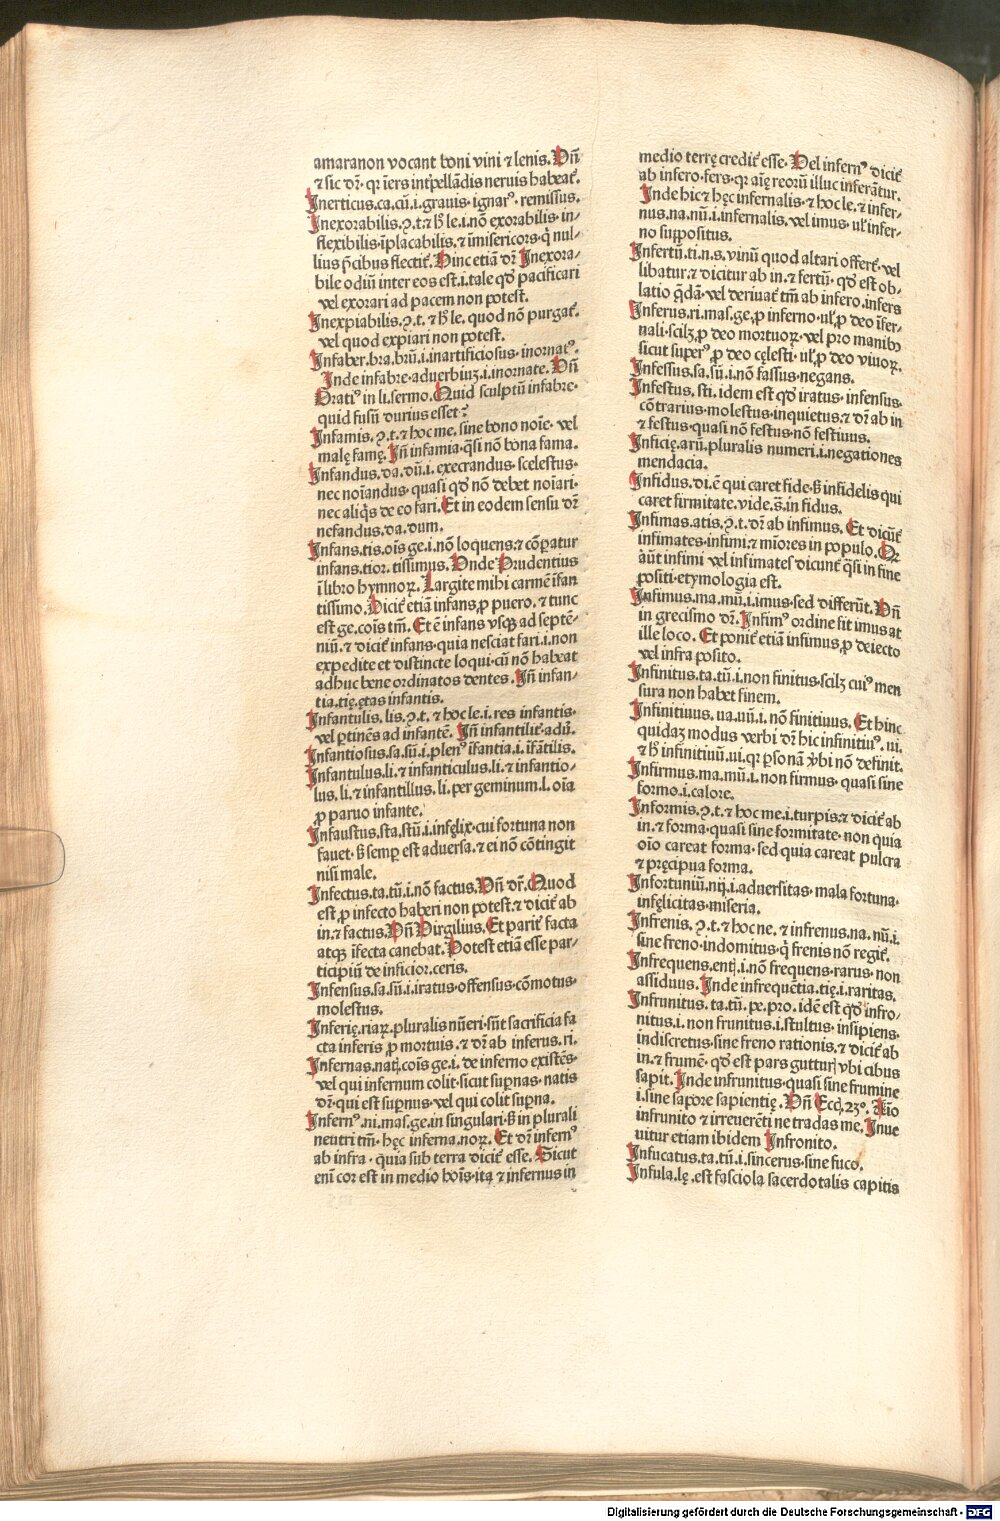 amaranon vocant boni vini ⁊ lenis. Vñ
⁊ sic dr̄. qr īers int̄pellādis neruis habeat᷑.
Inerticus.ca.cū.i.grauis. ignarꝰ. remissus.
Inexorabilis.ꝯ.t.⁊ hͦ le.i.nō exorabilis. in-
flexibilis.īplacabilis.⁊ īmisericors.q̇ nul-
lius p̄cibus flectit᷑. Hinc etiā dr̄ Inexora-
bile odiū inter eos est.i.tale qd̓ pacificari
vel exorari ad pacem non potest.
Inexpiabilis.ꝯ.t. ⁊ hͦ le. quod nō purgat᷑.
vel quod expiari non potest.
Infaber.bra.brū.i.inartificiosus. inornatꝰ.
Inde infabre.aduerbiuꝫ.i.inornate. Vñ
Oratiꝰ in li.sermo. Quid sculptū infabre.
quid fusū durius esset?
Infamis.ꝯ.t.⁊ hoc me. sine bono noīe. vel
malę famę. Iñ infamia.q̄si nō bona fama.
Infandus.da.dū.i. execrandus. scelestus.
nec noīandus. quasi qd̓ nō debet noīari.
nec aliq̇s de eo fari. Et in eodem sensu dr̄
nefandus.da.dum.
Infans.tis.oīs ge.i.nō loquens.⁊ cōꝑatur
infans.tior. tissimus. Vnde Prudentius
ī libro hymnoꝝ. Largite mihi carmē īfan
tissimo. Dicit᷑ etiā infans ꝓ puero. ⁊ tunc
est ge.coīs tm̄. Et ē infans vsqꝫ ad septē-
niū.⁊ dicit᷑ infans.quia nesciat fari.i.non
expedite et distincte loqui.cū nō habeat
adhuc bene ordinatos dentes. Iñ infan-
tia.tię.ętas infantis.
Infantulis.lis.ꝯ.t. ⁊ hoc le.i. res infantis.
vel ꝑtinēs ad infantē. Iñ infantilit᷑.adū.
Infantiosus.sa.sū.i.plenꝰ īfantia.i.īfātilis.
Infantulus.li.⁊ infanticulus.li.⁊ infantio-
lus.li.⁊ infantillus.li.per geminum.l.oīa
ꝓ paruo infante.
Infaustus.sta.stū.i.infęlix.cui fortuna non
fauet. ß semꝑ est aduersa.⁊ ei nō cōtingit
nisi male.
Infectus.ta.tū.i.nō factus. Vñ dr̄. Quod
est ꝓ infecto haberi non potest.⁊ dicit᷑ ab
in.⁊ factus. Vñ Virgilius. Et parit᷑ facta
atqꝫ īfecta canebat. Potest etiā esse par-
ticipiū de inficior.ceris.
Infensus.sa.sū.i.iratus.offensus.cōmotus.
molestus.
Inferię.riaꝝ.pluralis nūeri.sūt sacrificia fa
cta inferis ꝓ mortuis.⁊ dr̄ ab inferus.ri.
Infernas.natꝭ.coīs ge.i. de inferno existēs.
vel qui infernum colit.sicut suꝑnas.natis
dr̄. qui est suꝑnus.vel qui colit suꝑna.
Infernꝰ.ni.mas.ge.in singulari. ß in plurali
neutri tm̄. hęc inferna.noꝝ. Et dr̄ infernꝰ
ab infra. quia sub terra dicit᷑ esse. Sicut
enī cor est in medio boīs.ita ⁊ infernus in
medio terrę credit᷑ esse. Vel infernꝰ dicit᷑
ab infero.fers.qr aīę reorū illuc inferātur.
Inde hic ⁊ hęc infernalis.⁊ hoc le.⁊ infer-
nus.na.nū.i.infernalis.vel imus.ul̓ infer-
no suppositus.
Infertū.ti.n.s.vinū quod altari offert᷑.vel
libatur.⁊ dicitur ab in.⁊ fertū. qd̓ est ob-
latio q̄dā.vel deriuat᷑ tm̄ ab infero.infers
Inferus.ri.mas.ge.ꝓ inferno.ul̓.ꝓ deo īfer-
nali.scilꝫ.ꝓ deo mortuoꝝ.vel pro manibꝫ
sicut superꝰ ꝓ deo cęlesti.ul̓.ꝓ deo viuoꝝ.
Infessus.sa.sū.i.nō fassus.negans.
Infestus.sti.idem est qd̓ iratus.infensus.
cōtrarius.molestus.inquietus.⁊ dr̄ ab in
⁊ festus.quasi nō festus.nō festiuus.
Inficię.arū.pluralis numeri.i.negationes
mendacia.
Infidus.di.ē qui caret fide.ß infidelis qui
caret firmitate.vide.s̄.in fidus.
Infimas.atis.ꝯ.t. dr̄ ab infimus. Et dicūt᷑
infimates.infimi.⁊ mīores in populo. Qr
aūt infimi vel infimates dicunt᷑ q̄si in fine
positi.etymologia est.
Infimus.ma.mū.i.imus.sed differūt. Vñ
in grecismo dr̄. Infimꝰ ordine fit imus at
ille loco. Et ponit᷑ etiā infimus.ꝓ deiecto
vel infra posito.
Infinitus.ta.tū.i.non finitus.scilꝫ cuiꝰ men
sura non habet finem.
Infinitiuus.ua.uū.i.nō finitiuus. Et hinc
quidaꝫ modus verbi dr̄ hic infinitiuꝰ.ui.
⁊ hͦ infinitiuū.ui.qr ꝑsonā v̓bi nō definit.
Infirmus.ma.mū.i.non firmus.quasi sine
formo.i.calore.
Informis.ꝯ.t.⁊ hoc me.i.turpis.⁊ dicit᷑ ab
in.⁊ forma.quasi sine formitate.non quia
oīo careat forma.sed quia careat pulcra
⁊ pręcipua forma.
Infortuniū.nij.i.aduersitas.mala fortuna.
infęlicitas.miseria.
Infrenis.ꝯ.t.⁊ hoc ne.⁊ infrenus.na.nū.i.
sine freno.indomitus.q̇ frenis nō regit᷑.
Infrequens.entꝭ.i.nō frequens.rarus.non
assiduus. Inde infrequētia.tię.i.raritas.
Infrunitus.ta.tū.pe.pro.idē est qd̓ infro-
nitus.i.non frunitus.i.stultus.insipiens.
indiscretus.sine freno rationis.⁊ dicit᷑ ab
in.⁊ frumē. qd̓ est pars gutturꝭ vbi cibus
sapit. Inde infrunitus.quasi sine frumine
i.sine sapore sapientię. Vñ Ecci.23ͦ. Aīo
infrunito ⁊ irreuerēti ne tradas me. Inue
uitur etiam ibidem Infronito.
Infucatus.ta.tū.i.sincerus.sine fuco.
Infula.lę.est fasciola sacerdotalis capitis
Digitalisierung gefördert durch die Deutsche Forschungsgemeinschaft - DFG